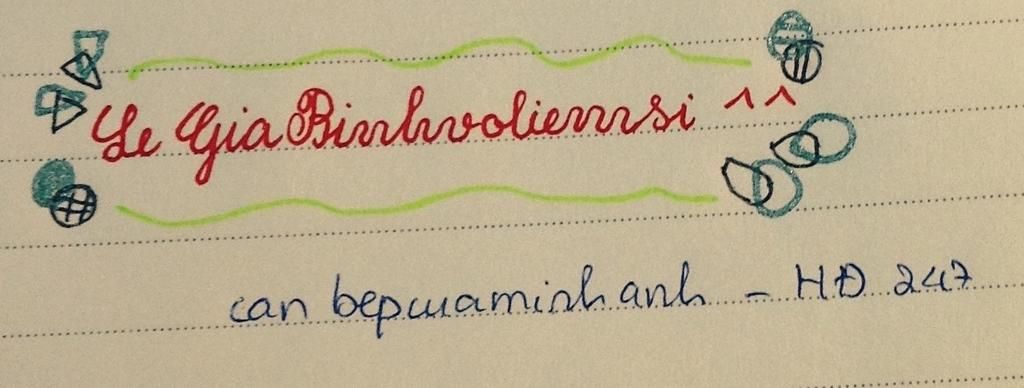 Le Gia Binhvoliemsi ^^
can bepcuaminh anh - HĐ 247